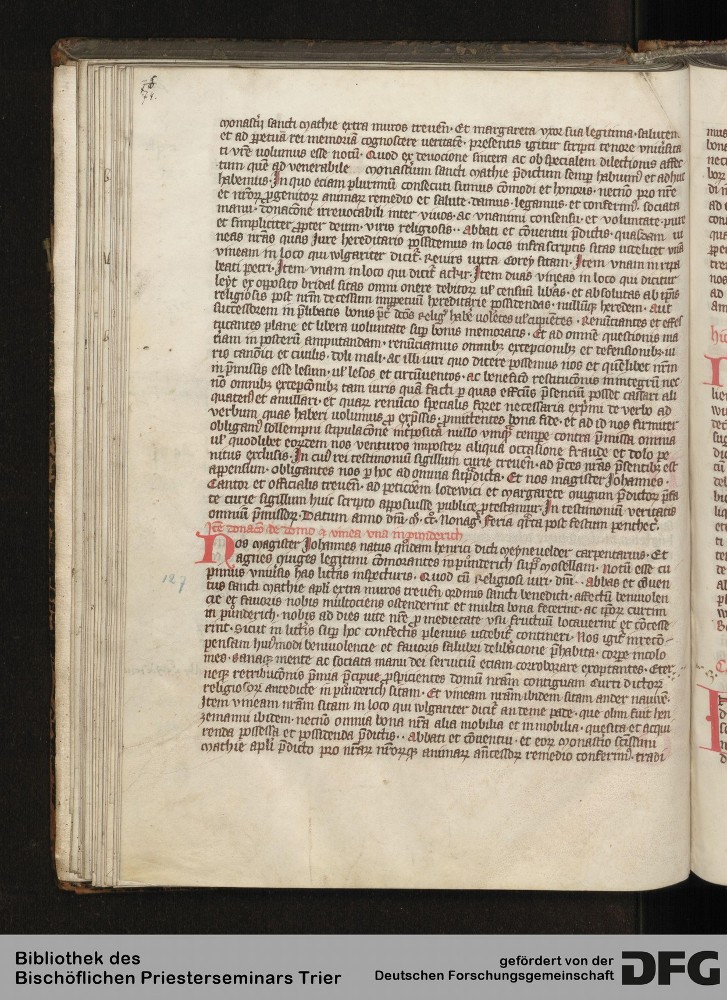 monast͛ii sancti mathie extra muros treueñ · Et margareta vxor sua legitima · saluteɱ
et ad ꝑpetuā rei memoriā cognoscere veritatē · presentis igitur scripti tenore vniuͥsita
ti vr̄e uolumus esse notū · Quod ex deuocione sincera ac ob specialem dilectionis affec
tum quē ad venerabile monast͛ium sancti mathie p̄dictum semꝑ habuimꝰ et adhuc
habemus · In quo eciam plurimū consecuti sumus cōmodi et honoris · necnō pro nr̄e
et nr̄oꝝ ꝓgenitoꝝ animaꝝ remedio et salute · damus · legamus · et conferimꝰ sociata
manu · donacōne irreuocabili inter viuos · ac vnanimi consensu · et voluntate · pure
et simpliciter ꝓpter deum · viris religiosis · · abbati et cōuentui p̄dictis · quasdam ui
neas nr̄as quas Jure hereditario possidemus in locis infrascriptis sitas uidelicet vnā
vineam in loco qui vlgariter dicit᷑ · Reuirs iuxta Corey sitam · Item vnam in ripa
beati petri · Item vnam in loco qui dicit᷑ acht᷑ · Item duas vineas in loco qui dicitur
leyt ex opposito bridal sitas omni onere debitoꝝ uł censuū libᷓas · et absolutas ab ip̄is
religiosis post nr̄m decessum inꝑpetuū hereditarie possidendas · nulliusqꝫ heredem · aut
successorem in p̄libatis bonis
tucantes plane et libera uoluntate suꝑ bonis memoratis · Et ad omnē questionis ma
tiam in posterū amputandam · renūciamus omnibꝫ excepcionibꝫ et defensionibꝫ · iu
ris canōici et ciuilis · doli mali · ac illi iuri quo dicere possemus nos et quēlibet nr̄m
in p̄missis esse lesum · uł lesos et circūuentos · ac beneficō restitucōnis inintegrū nec
nō omnibꝫ excepcōnibꝫ tam iuris quā facti ꝑ quas effectus p̄senciū posset cassari ali
quatenꝰ et annullari · et quaꝝ renūcio specialis foret necessaria exp̄mi de verbo ad
verbum quas haberi uolumus ꝓ exp̄ssis · ꝓmittentes bona fide · et ad id nos firmiter
obligandꝰ sollempni stipulacōne int͛posita nullo vnqͣꝫ tempe contra p̄missa omnia
uł quodlibet eorundem nos venturos inposteꝝ aliqua occasione fraude et dolo pe
nitus exclusis · In cuiꝰ rei testimoniū sigillum curie treueñ · ad p̄ces nr̄as p̄sentibꝫ est
appensum · obligantes nos ꝑ hoc ad omnia suꝑdicta · Et nos magister Johannes ·
Cantor et officialis treueñ · ad peticōem lodewici et margarete ɔiugum p̄dictoꝝ p̄fa
te curie sigillum huic scripto apposuisse publice ꝓtestamur · In testimoniū veritatis
omniū p̄missoꝝ · Datum anno dn̄i · m · cc · Nonagꝰ · feria qͣrta post festum penthec̄ ·
Itē donacō de domo et vinea vna in pūnderich
Nos magister Johannes natus qͦndam henrici dicti meyneuelder carpentarius · Et
agnes ɔiuges legitimi cōmorantes in pūnderich suꝑ mosellam · Notū esse cu
pimus vniuͥsis has lr̄as inspecturis · Quod cū Religiosi uiri · dn̄i · · abbas et cōuen
tus sancti mathie apl̄i extra muros treueñ ordinis sancti benedicti · affectū beniuolen
cie et fauoris nobis multociens ostenderint et multa bona fecerint · ac ip̄oꝝ curtim
in pūnderich · nobis ad dies uite nr̄e ꝓ medietate vsu fructuū locauerint et cōcesse
rint · sicut in litt͛is suꝑ hoc confectis plenius uidebit᷑ contineri · Nos igit᷑ in recō
pensam huiꝰmodi beniuolencie et fauoris salubri delibᷓacione p̄habita · corpe incolo
mes · sanaqꝫ mente ac sociata manu dei seruiciū eciam corroborare exoptantes · Eter
neqꝫ retribucōnis p̄mia p̄cipue ꝓspicientes domū nr̄am contiguam Curti dictoꝝ
religiosoꝝ antedicte in pūnderich sitam · Et vineam nr̄am ibidem sitam ander nauwē ·
Item vineam nr̄am sitam in loco qui wlgariter dicit᷑ an deme pade · que olim fuit hen
zemanni ibidem · necnō omnia bona nr̄a alia mobilia et inmobilia · quesita et acqui
renda possessa et possidenda p̄dictis · · abbati et cōuentui · et eoꝝ monast͛io sc̄issimi
mathie apl̄i p̄dicto pro nr̄aꝝ nr̄orqꝫ animaꝝ ancessoꝝ remedio conferimꝰ · tradi
127
Bibliothek des
Bischöflichen Priesterseminars Trier
gefördert von der
Deutschen Forschungsgemeinschaft
DFG